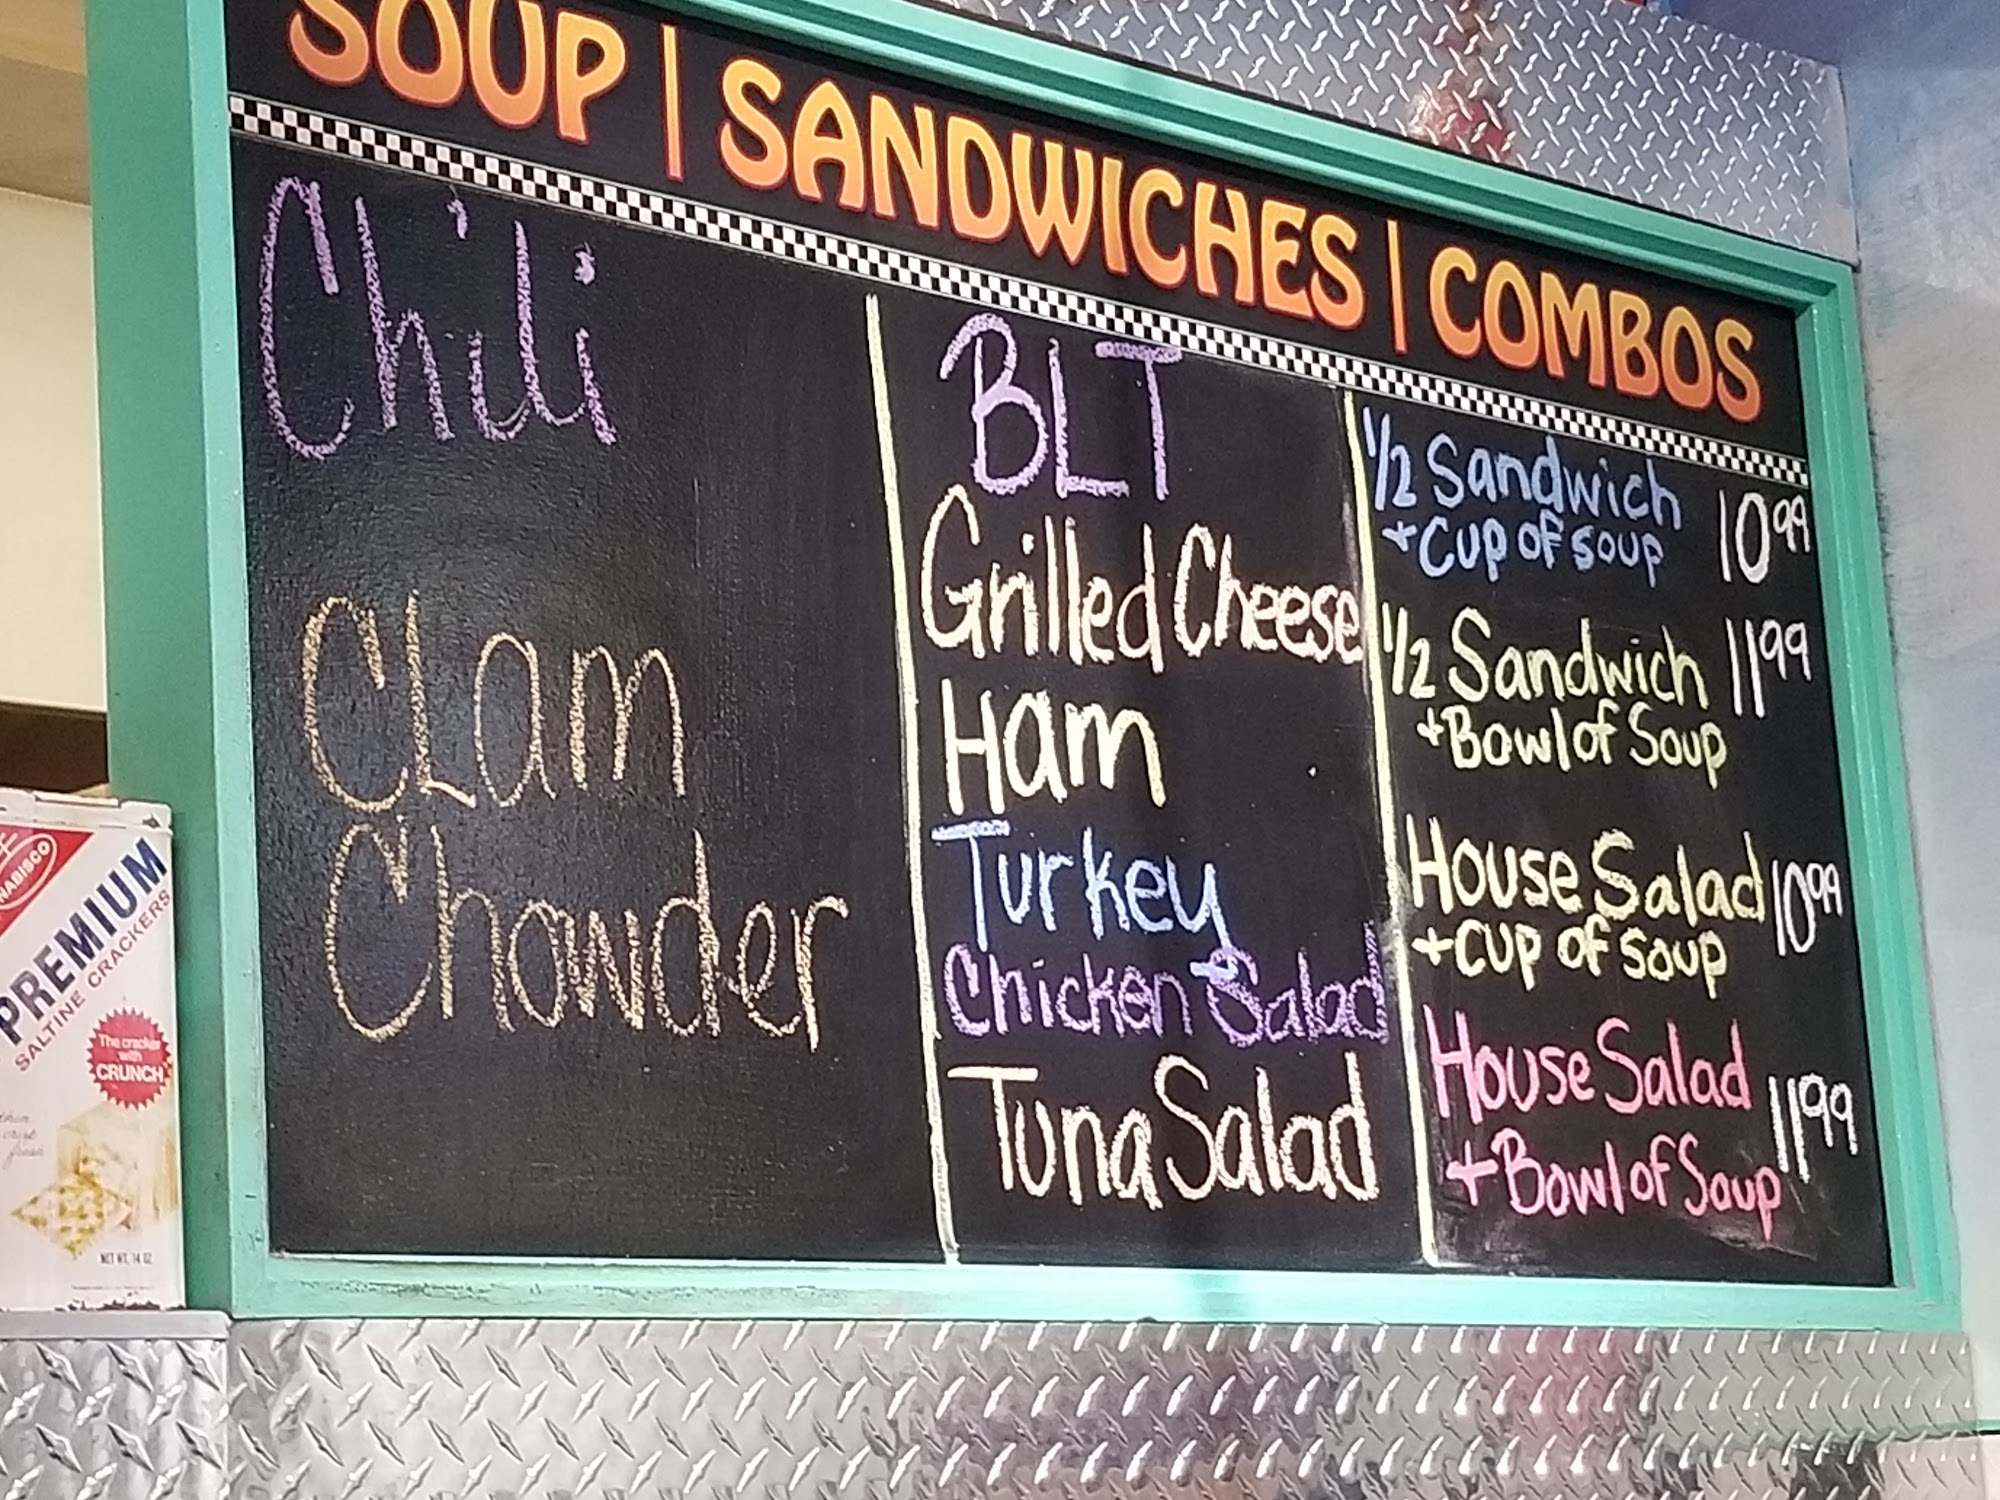 SOUP | SANDWICHES | COMBOS
Chili
Clam
Chowder
BLT
Grilled Cheese
Ham
Turkey
Chicken Salad
Tuna Salad
1/2 Sandwich
+ Cup of Soup 10.99
1/2 Sandwich 11.99
+ Bowl of Soup
House Salad 10.99
+ Cup of Soup
House Salad
+ Bowl of Soup 11.99
NABISCO
PREMIUM
SALTINE CRACKERS
The cracker
with
CRUNCH
NET WT. 14 OZ